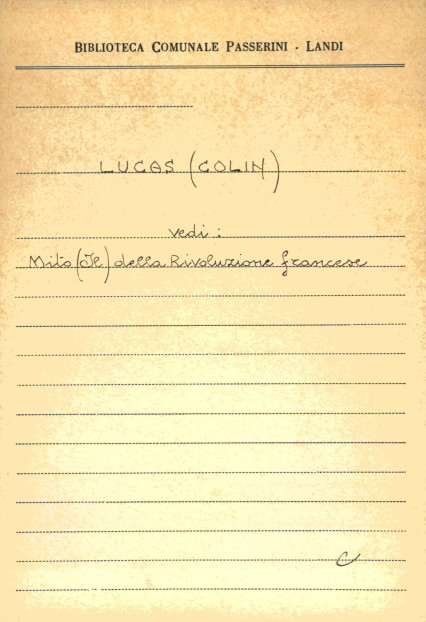 BIBLIOTECA COMUNALE PASSERINI - LANDI
LUCAS (COLIN)
vedi :
Mito (Il) della Rivoluzione francese
C